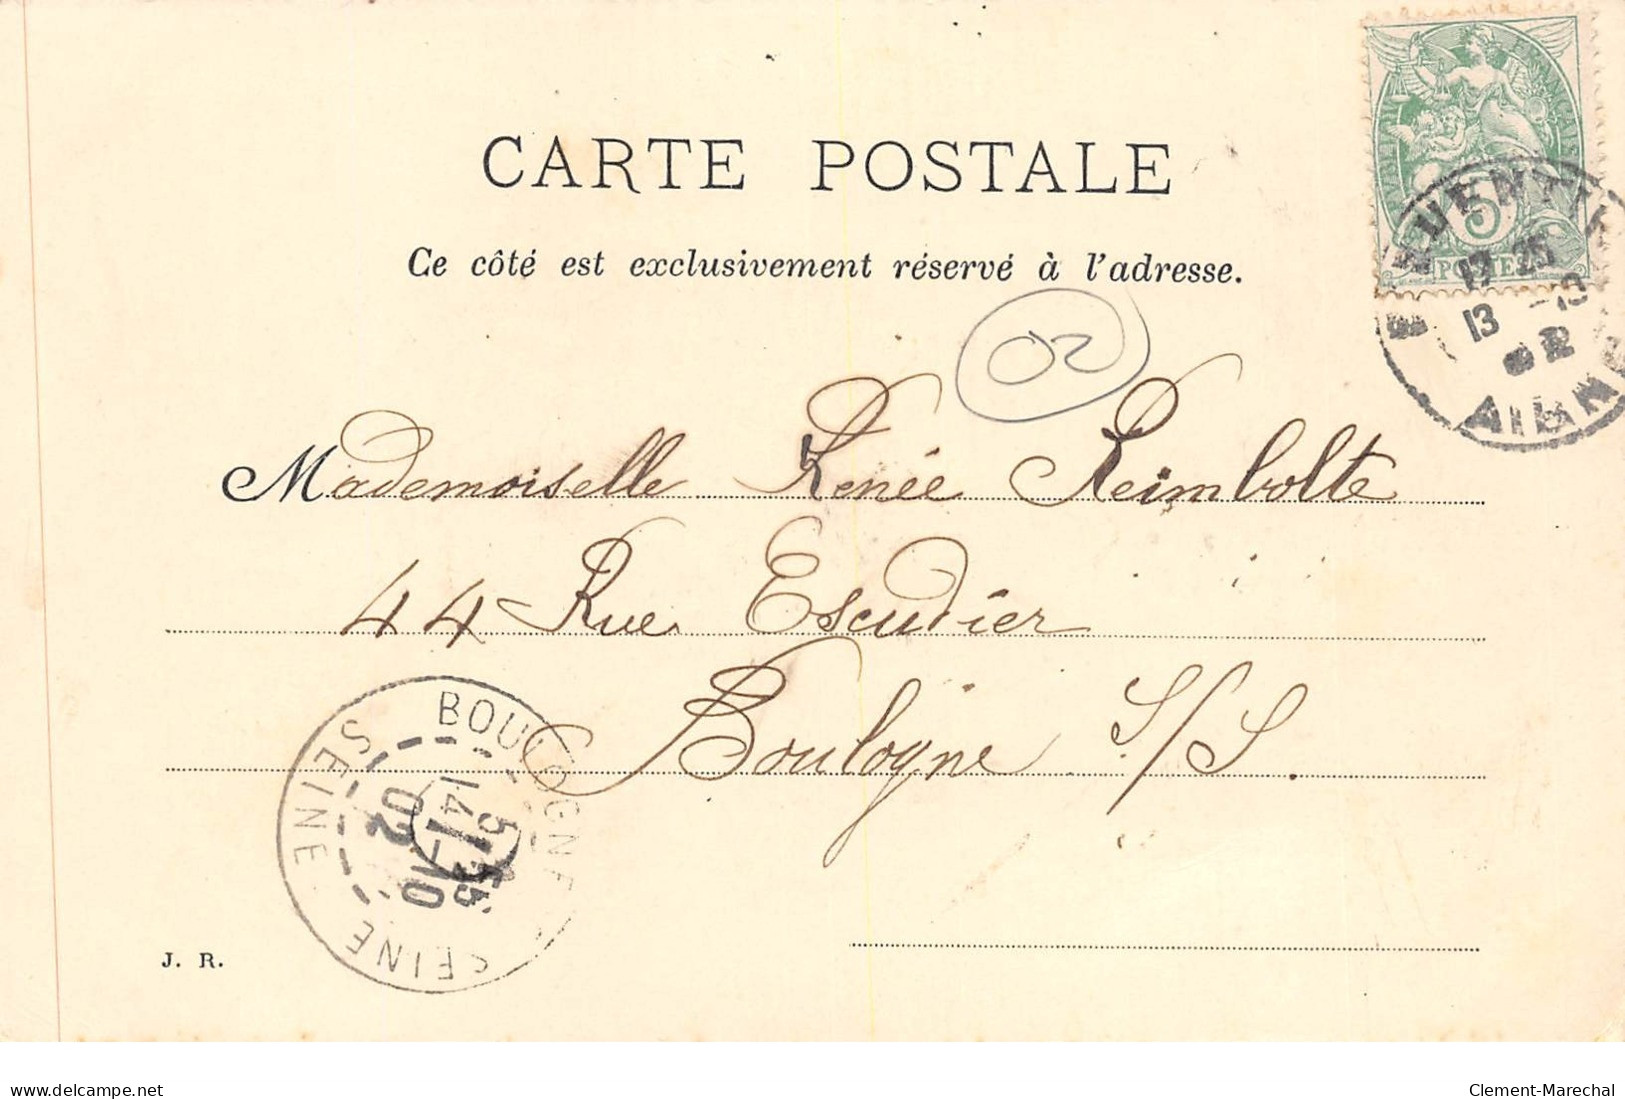 CARTE POSTALE
Ce côté est exclusivement réservé à l'adresse.
RÉPUBLIQUE FRANÇAISE
5
POSTES
13
AISNE
02
Mademoiselle Renée Reimbolte
44 Rue Escudier
Boulogne S/S.
BOULOGNE SEINE
SEINE
14 -10
02
J. R.
delcampe.net
Clement-Marechal